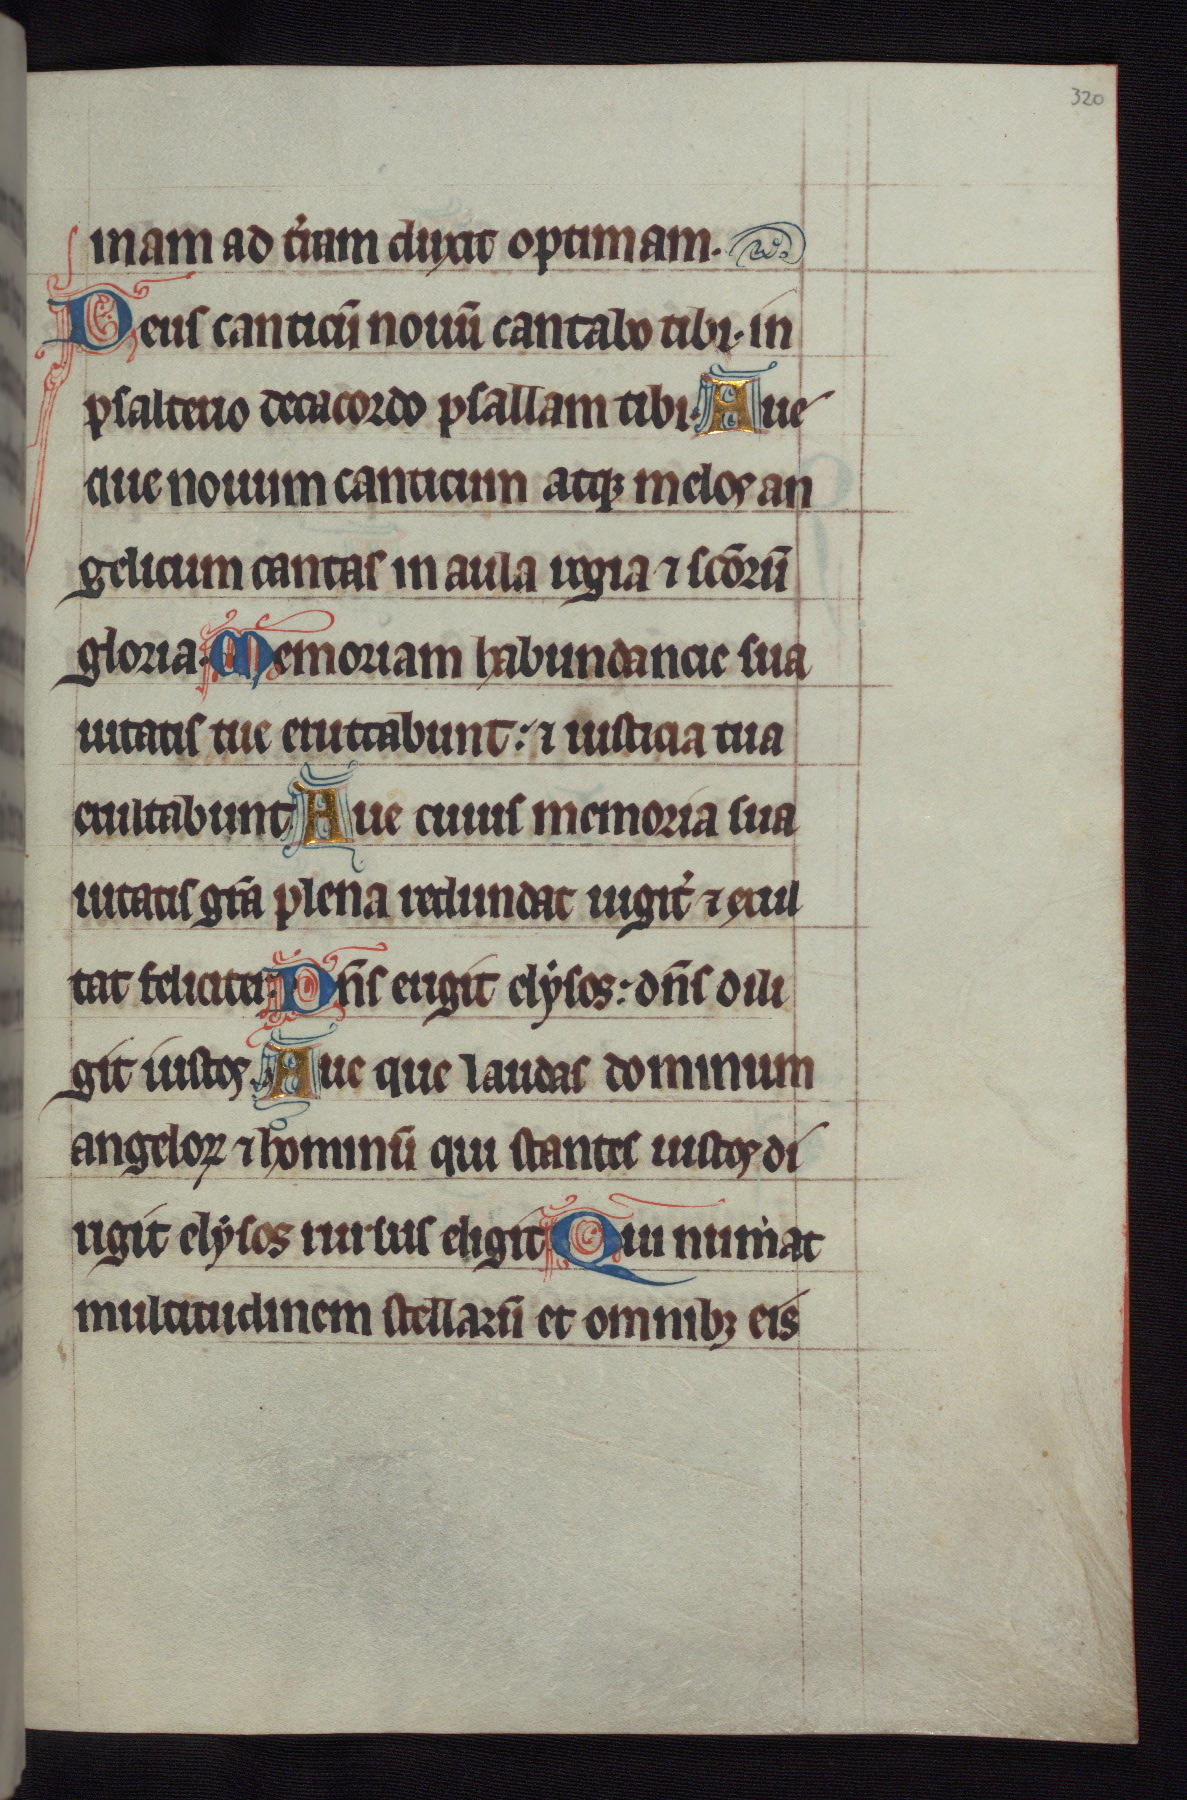 320
inam ad t'ram duxit optimam.
Deus canticū nouū cantabo tibi. in
psalterio decacordo psallam tibi. Aue
que nouum canticum atq; melos an
gelicum cantas in aula regia ⁊ scōrū
gloria. Memoriam habundancie sua
uitatis tue eructabunt: ⁊ iusticia tua
exultabunt. Aue cuius memoria sua
uitatis grā plena redundat iugit' ⁊ exul
tat feliciter. Dn̄s erigit elẏsos: dn̄s dili
git iustos. Aue que laudas dominum
angeloꝝ ⁊ hominū qui stantes iustos di
rigit elẏsos rursus eligit Qui num'at
multitudinem stellarū et omnibꝫ eis